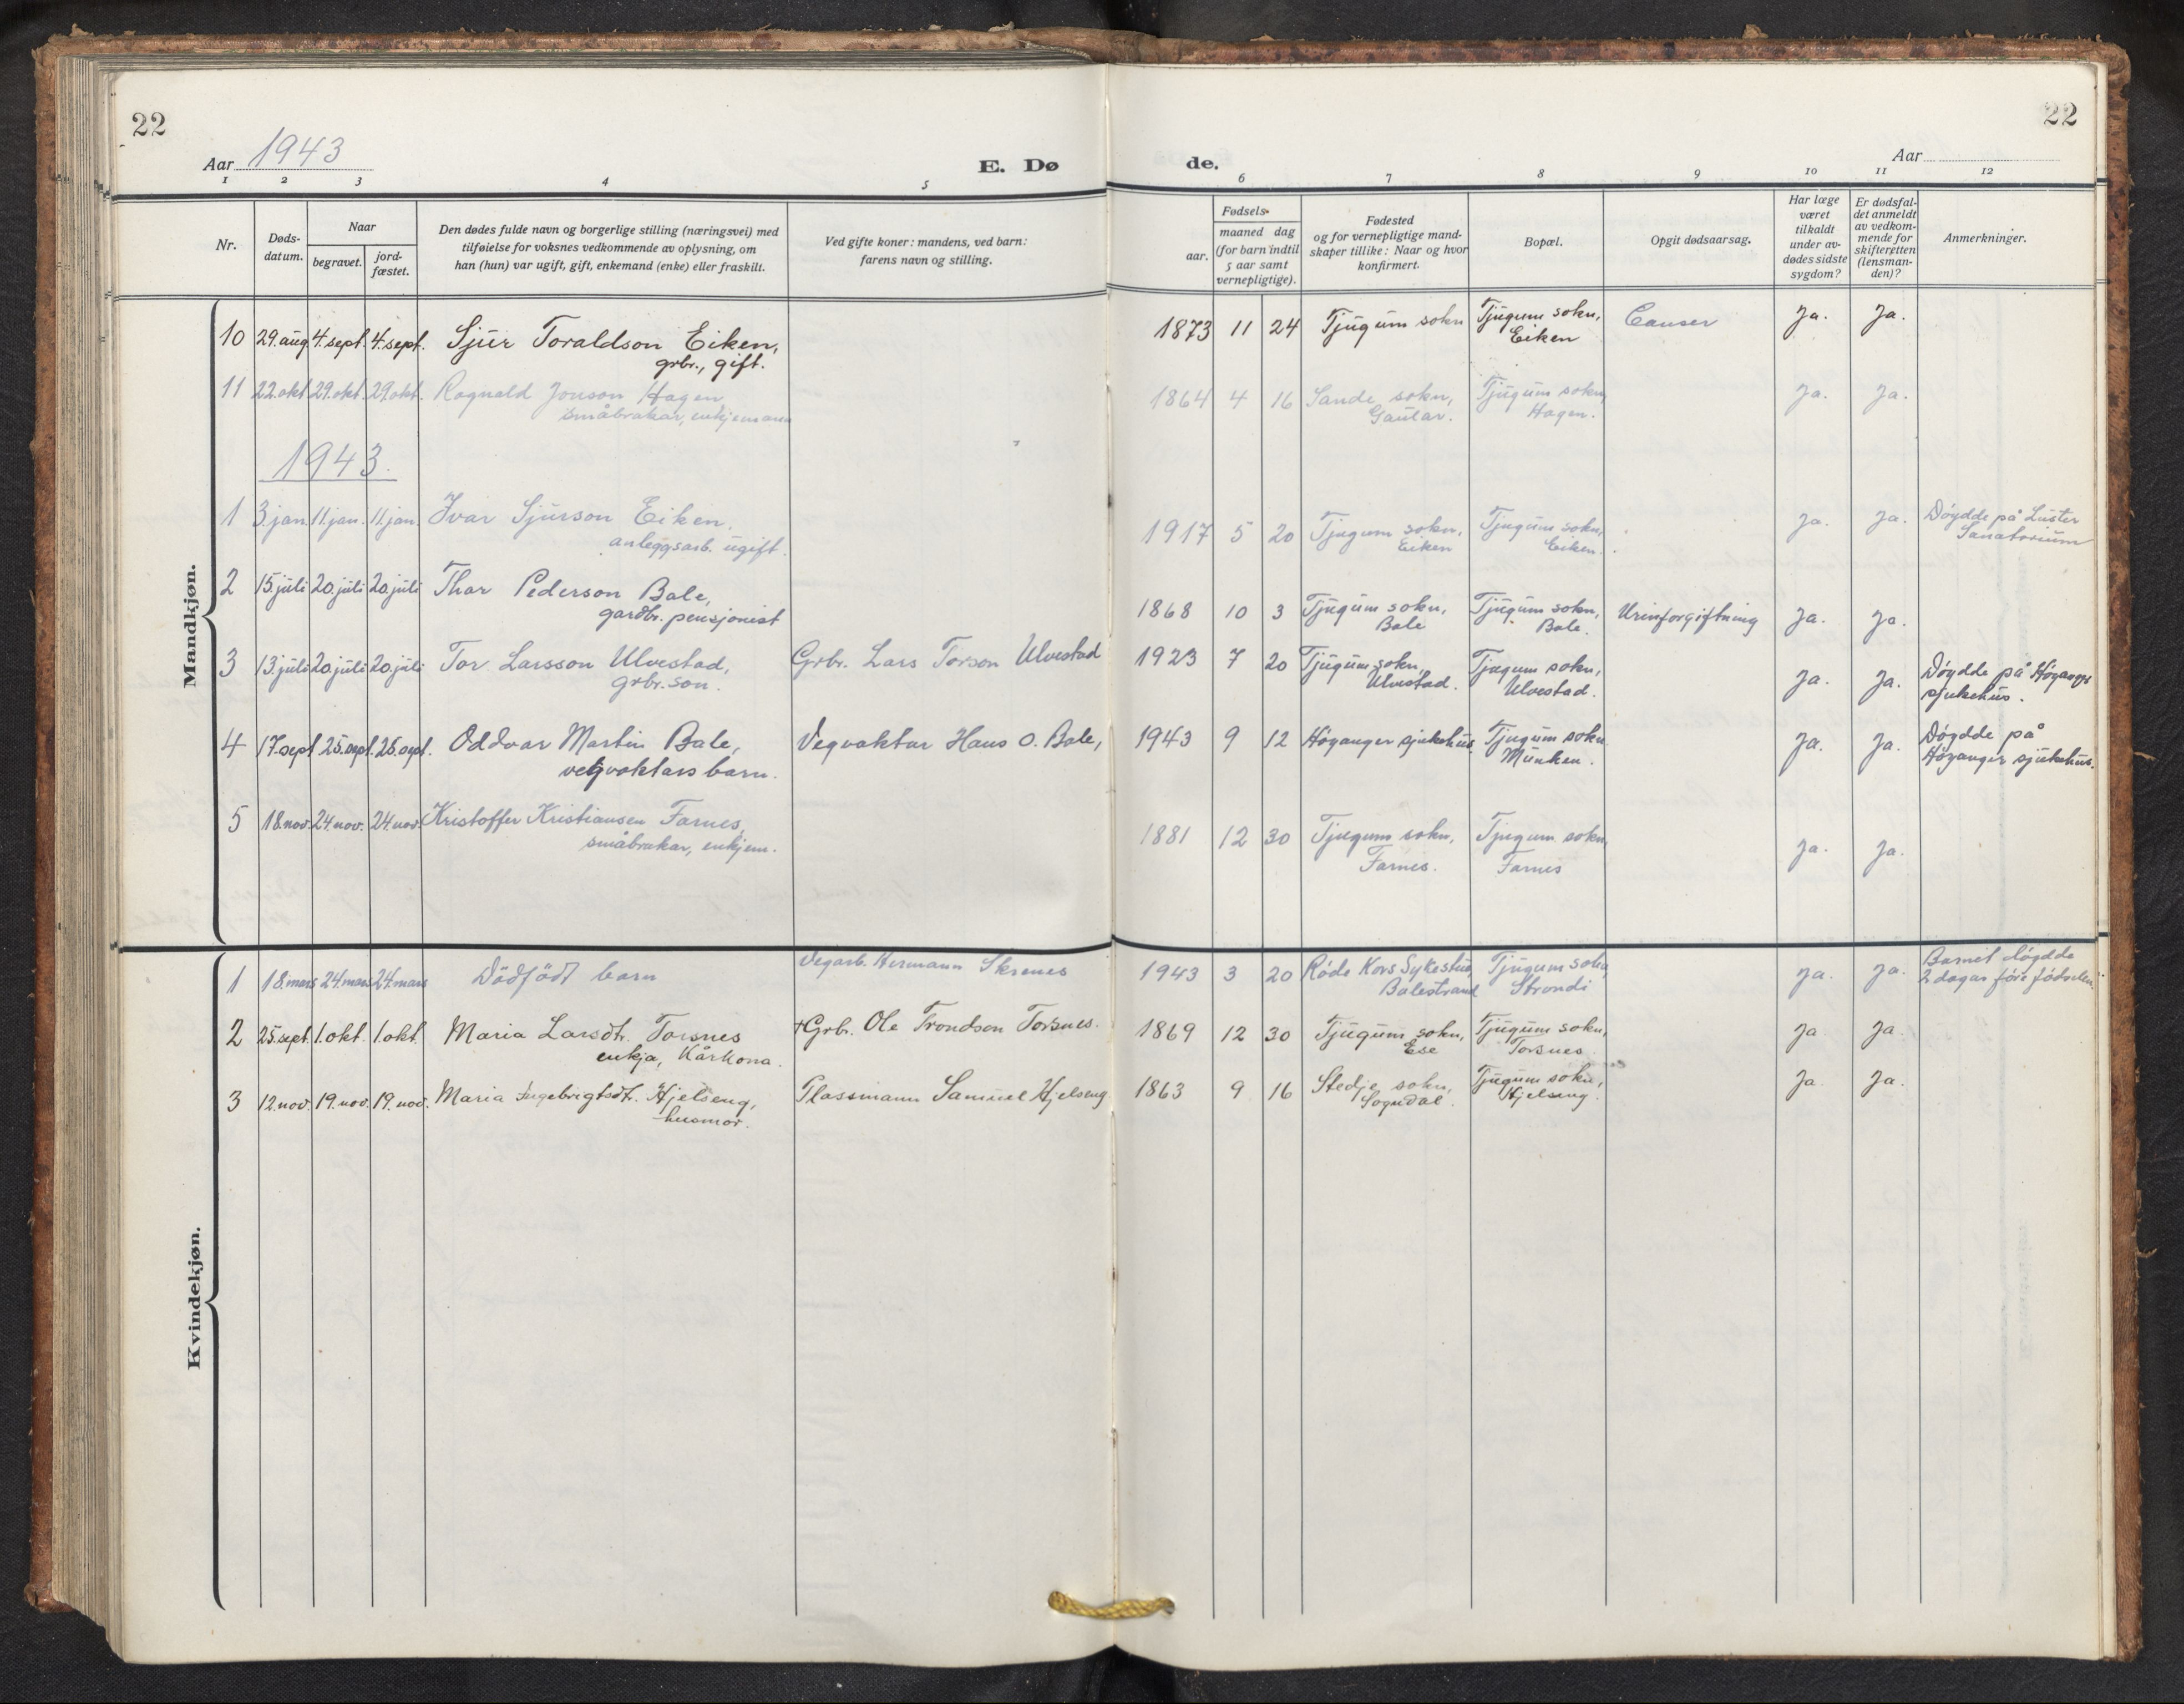 22
22
Aar 1943
E. Dø
de.
Aar
1 2 3 4 5 6 7 8 9 10 11 12
Nr.
Døds-
datum.
Naar
begravet.
jord-
fæstet.
Den dødes fulde navn og borgerlige stilling (næringsvei) med
tilføielse for voksnes vedkommende av oplysning, om
han (hun) var ugift, gift, enkemand (enke) eller fraskilt.
Ved gifte koner: mandens, ved barn:
farens navn og stilling.
Fødsels-
aar.
maaned dag
(for barn indtil
5 aar samt
vernepligtige).
Fødested
og for vernepligtige mand-
skaper tillike: Naar og hvor
konfirmert.
Bopæl.
Opgit dødsaarsag.
Har læge
været
tilkaldt
under av-
dødes sidste
sygdom?
Er dødsfal-
det anmeldt
av vedkom-
mende for
skifteretten
(lensman-
den)?
Anmerkninger.
Mandkjøn.
10 29. aug. 4. sept. 4. sept. Sjur Toraldson Eiken, 1873 11 24 Tjugum sokn Tjugum sokn, Canser Ja. Ja.
grbr., gift. Eiken
11 22. okt. 29. okt. 29. okt. Ragnald Jonson Hagen 1864 4 16 Sande sokn, Tjugum sokn, Ja. Ja.
småbrukar, enkjemann Gaular. Hagen.
1943.
1 3. jan. 11. jan. 11. jan. Ivar Sjurson Eiken. 1917 5 20 Tjugum sokn, Tjugum sokn, Ja. Ja. Døydde på Luster
anleggsarb. ugift. Eiken Eiken. Sanatorium
2 15. juli 20. juli 20. juli Thar Pederson Bale, 1868 10 3 Tjugum sokn, Tjugum sokn, Urinforgiftning Ja. Ja.
gardbr. pensjonist Bale Bale.
3 13. juli 20. juli 20. juli Tor Larsson Ulvestad, Grbr. Lars Torson Ulvestad 1923 7 20 Tjugum sokn Tjugum sokn, Ja. Ja. Døydde på Høyangr
grbr. son. Ulvestad. Ulvestad. sjukehus.
4 17. sept 25. sept. 25. sept. Oddvar Martin Bale, Vegvaktar Hans O. Bale, 1943 9 12 Høyanger sjukehus Tjugum sokn Ja. Ja. Døydde på
vegvaktars barn. Munken. Høyanger sjukehus.
5 18. nov. 24. nov. 24. nov. Kristoffer Kristiansen Farnes, 1881 12 30 Tjugum sokn, Tjugum sokn, Ja. Ja.
småbrukar, enkjem. Farnes. Farnes
Kvindekjøn.
1 18. mars 24. mars 24. mars Dödfödt barn Vegarb. Hermann Skrenes 1943 3 20 Røde Kors Sykestue, Tjugum sokn, Ja. Ja. Barnet døydde
Balestrand Strondi 2 dagar føre fødselen.
2 25. sept. 1. okt. 1. okt. Maria Larsdtr. Torsnes +Grbr. Ole Trondson Torsnes. 1869 12 30 Tjugum sokn, Tjugum sokn, Ja Ja.
enkja, Kårkona. Ese Torsnes
3 12. nov. 19. nov. 19. nov. Maria Ingebrigtsdt. Hjelseng, Plassmann Samuel Hjelseng 1863 9 16 Stedje sokn, Tjugum sokn, Ja Ja.
husmor. Sogndal. Hjelseng.